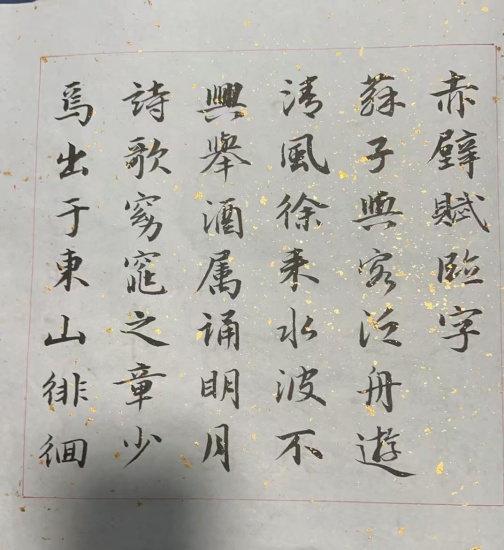 赤壁賦臨字
蘇子與客泛舟遊
清風徐来水波不
興舉酒属誦明月
詩歌窈窕之章少
焉出于東山徘徊